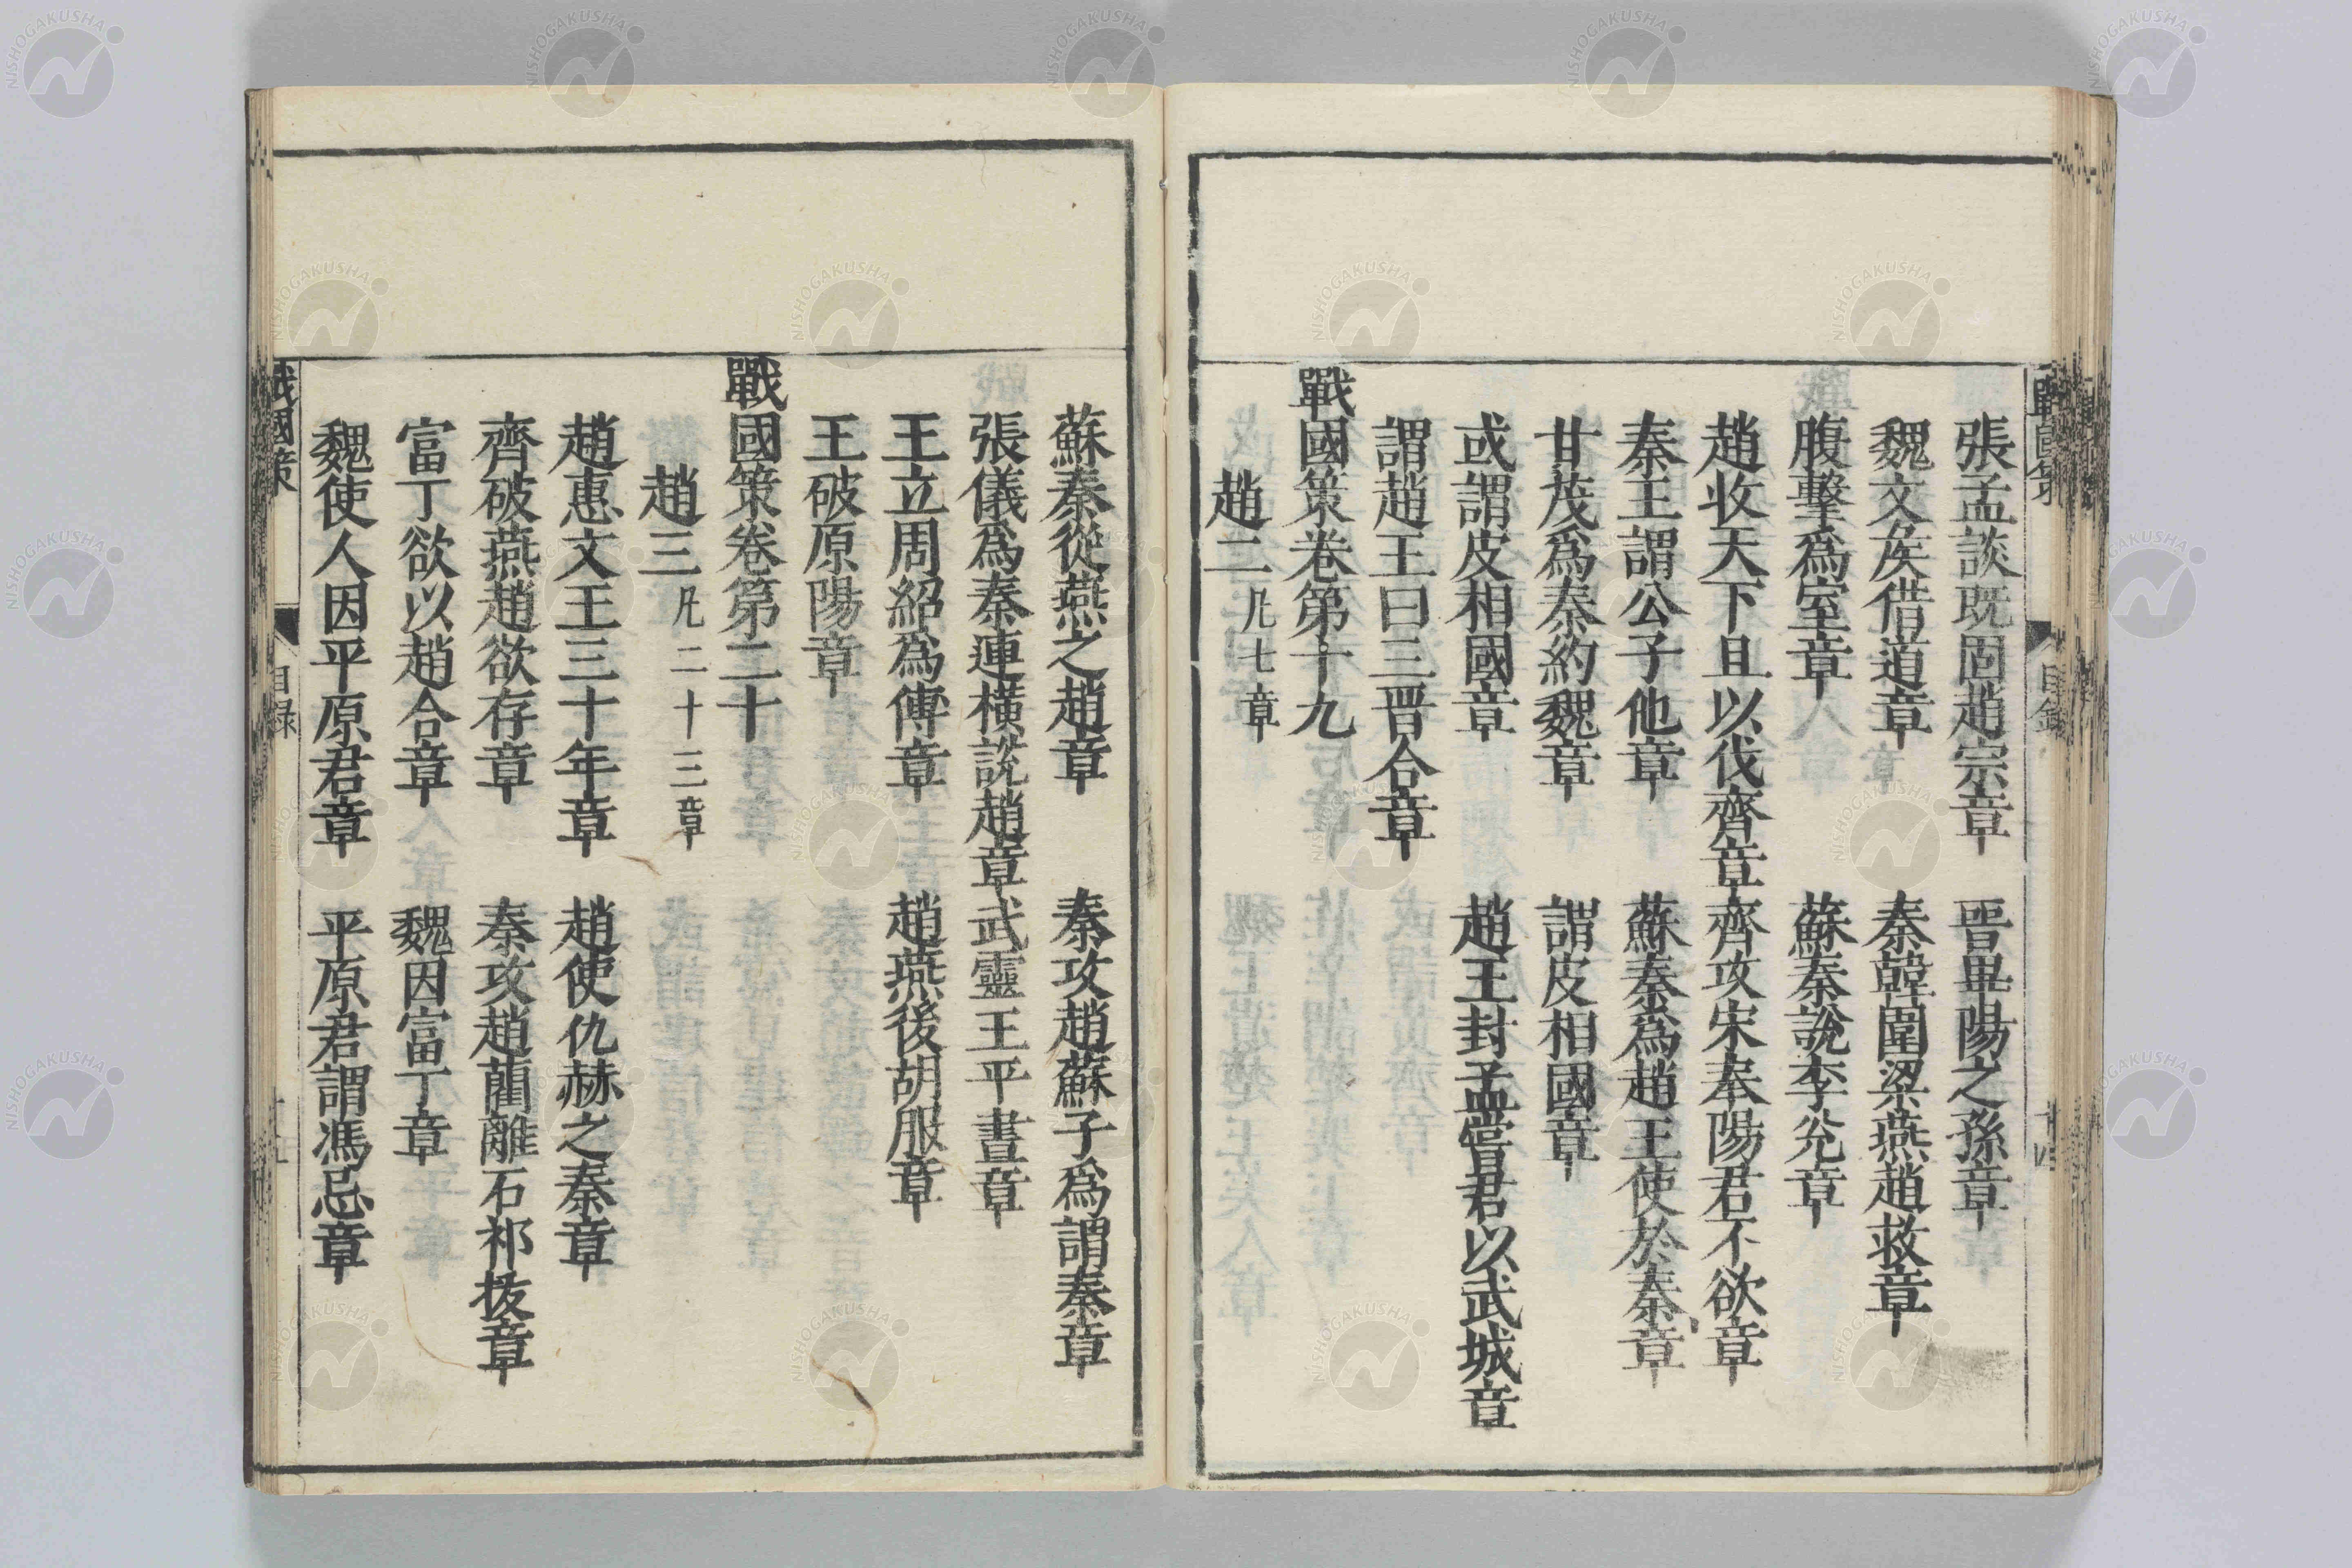 張孟談既固趙宗章　晉畢陽之孫章
魏文矦借道章　秦韓圍梁燕趙救章
腹擊爲室章　蘇秦說李兊章
趙收天下且以伐齊章齊攻宋奉陽君不欲章
秦王謂公子他章　蘇秦爲趙王使於秦章
甘茂爲秦約魏章　謂皮相國章
或謂皮相國章　趙王封孟嘗君以武城章
謂趙王曰三晋合章
戰國策卷第十九
趙二凡七章
蘇秦從燕之趙章　秦攻趙蘇子爲謂秦章
張儀爲秦連橫說趙章武靈王平晝章
王立周紹爲傅章　趙燕後胡服章
王破原陽章
戰國策卷第二十
趙三凡二十三章
趙惠文王三十年章　趙使仇赫之秦章
齊破燕趙欲存章　秦攻趙藺離石祁拔章
富丁欲以趙合章　魏因富丁章
魏使人因平原君章　平原君謂馮忌章
戰國策　目録
NISHOGAKUSHA